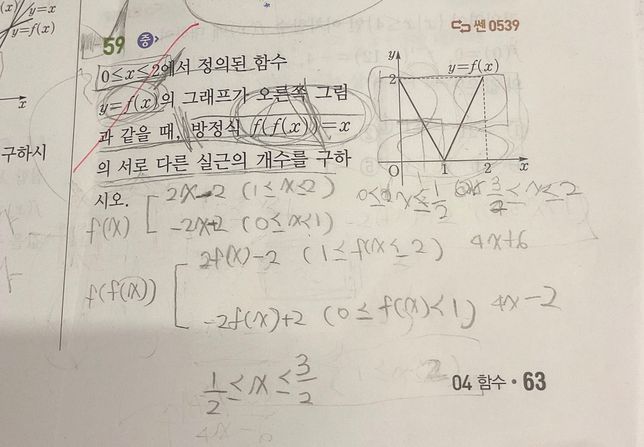 y=x
y=f(x)
x
구하시
쎈 0539
59 중
0≤x≤2에서 정의된 함수
y=f(x)의 그래프가 오른쪽 그림
과 같을 때, 방정식 f(f(x))=x
의 서로 다른 실근의 개수를 구하
시오.
y
y=f(x)
2
O 1 2 x
f(x) [ 2x-2 (1≤x≤2)
-2x+2 (0≤x<1)
0≤x≤1/2
3/2≤x≤2
f(f(x)) [ 2f(x)-2 (1≤f(x)≤2) 4x+6
-2f(x)+2 (0≤f(x)<1) 4x-2
1/2≤x≤3/2
04 함수 · 63